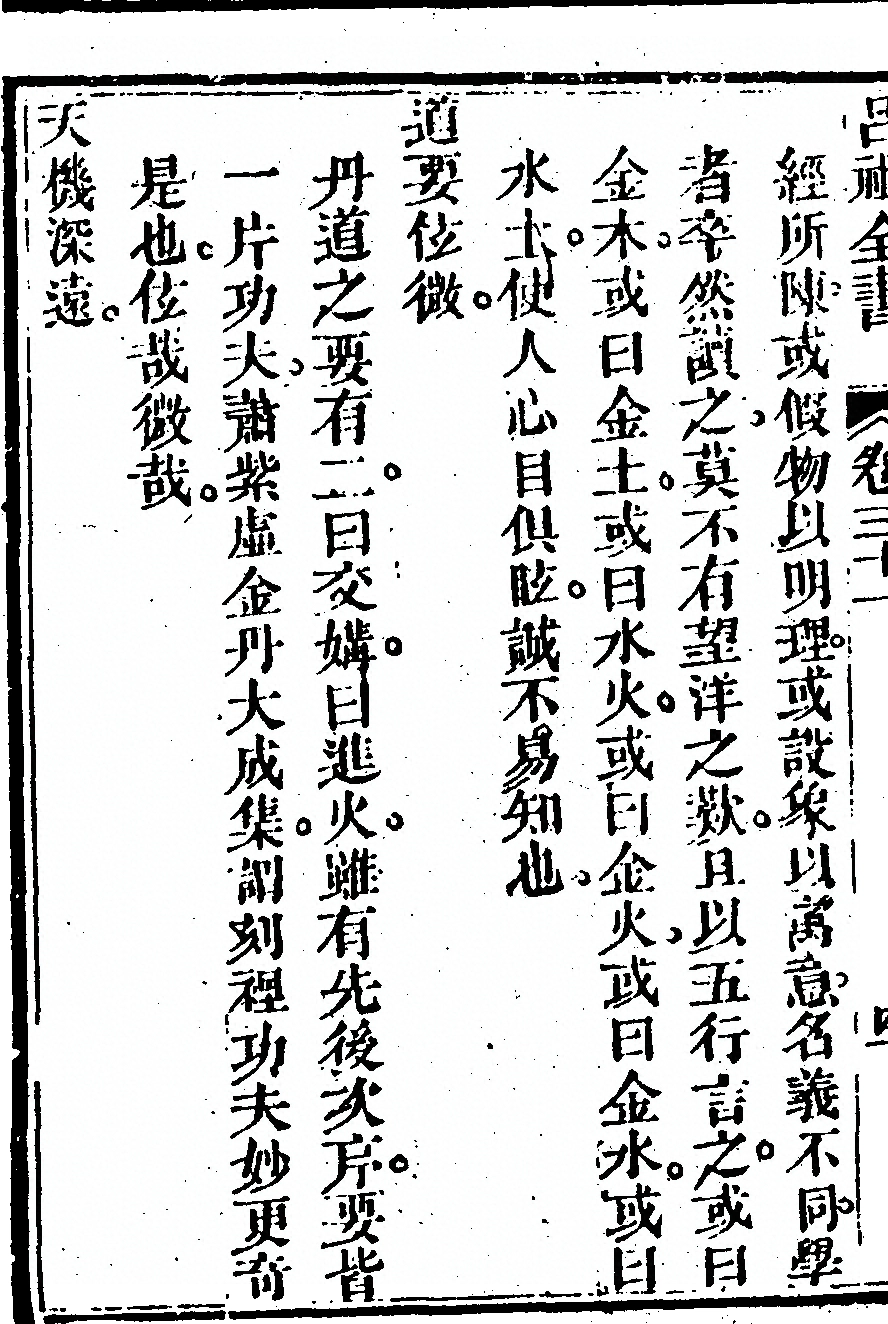 呂祖全書 卷三十一 四
經所陳或假物以明理。或設象以寓意。名義不同。學
者卒然讀之。莫不有望洋之歎。且以五行言之。或曰
金木。或曰金土。或曰水火。或曰金火。或曰金水。或曰
水土。使人心目俱眩。誠不易知也。
道要伭微。
丹道之要有二。曰交媾。曰進火。雖有先後次序。要皆
一片功夫。蕭紫虛金丹大成集。謂刻裡功夫妙更奇
是也。伭哉微哉。
天機深遠。